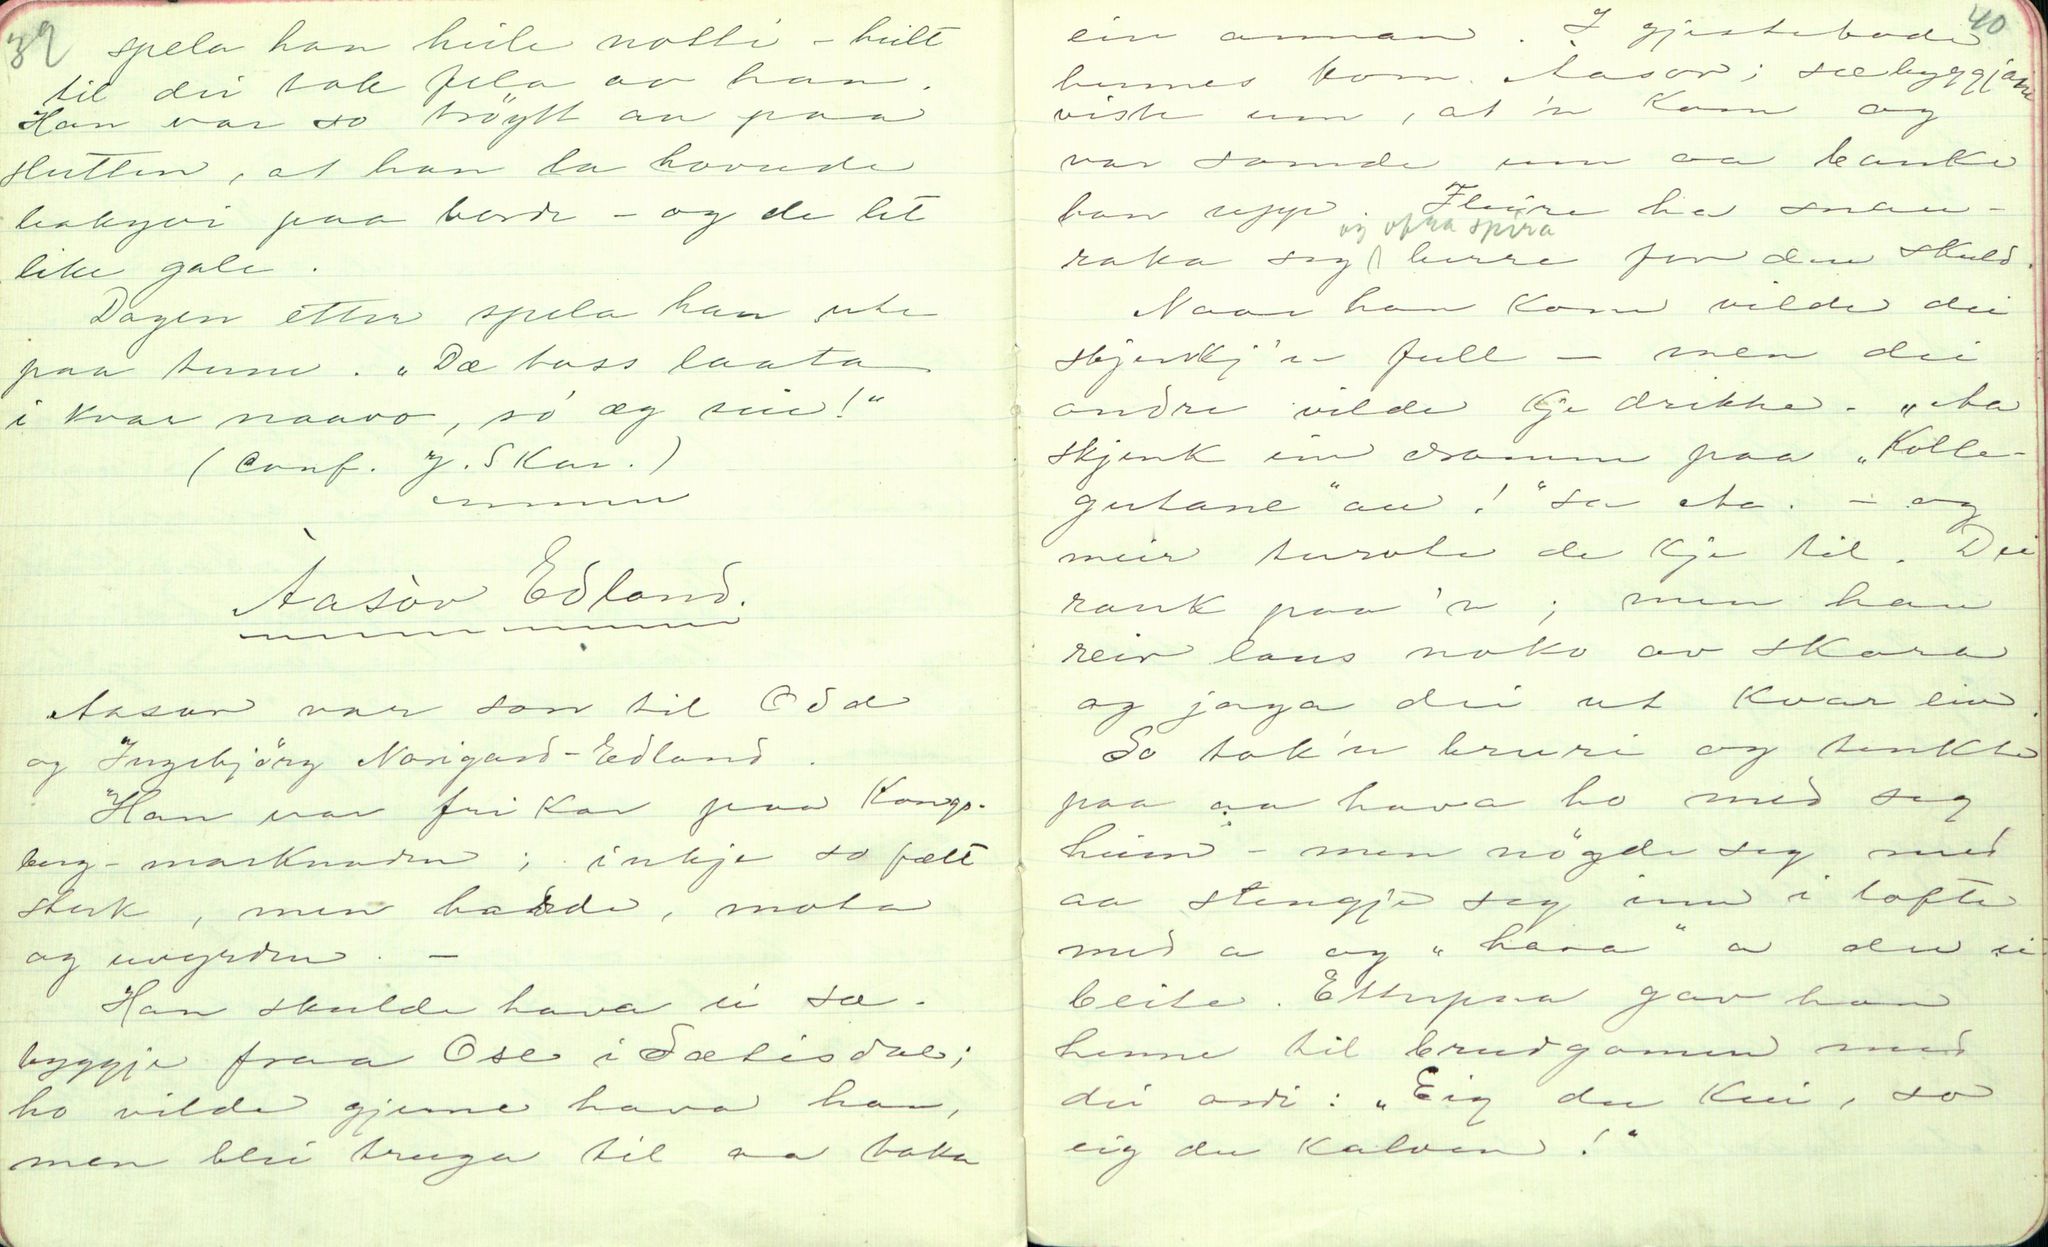 39
spela han heile notti - heilt
til dei tok fela av han.
Han var so tröytt au paa
slutten, at han la hovude
bakyvi paa bordi - og de let
like gale.
Dagen etter spela han ute
paa tune. "Dæ bass laata
i kvar naavo, só æg seie!"
(Conf. J. Skar.)
Aasòv Edland.
Aasov var son til Odd
og Ingebjörg Norigard-Edland.
Han var fri Kar paa Kongs-
berg-marknaden; inkje so fælt
sterk, men hadde, mota
og uvyrden. -
Han skulde hava ei sæ-
byggje fraa Ose i Sætisdal;
ho vilde gjerne hava han,
men blei truga til aa taka
40
ein annan. I gjestebode
hennes kom Aasov; sæbyggjane
viste um, at 'n kom og
var samde um aa banke
han upp. Fleire ha snau-
og opra spira
raka seg berre for den skuld.
Naar han kom vilde dei
skjenkj'n full - men dei
andre vilde kje drikke. "Aa
skjenk ein dramm paa "Kolle-
gutane" au!" sa Aa. - og
meir turvte de kje til. Dei
rauk paa 'n; men han
reiv laus noko av skara
og jaga dei ut kvar ein.
So tok'n bruri og tenkte
paa aa hava ho med seg
heim - men nögde seg med
aa stengje seg inn i lofte
med a og "hava" a den ei
beite. Etterpaa gav han
henne til brudgomen med
dei ordi: "Eig du kui, so
eig du kalven!"